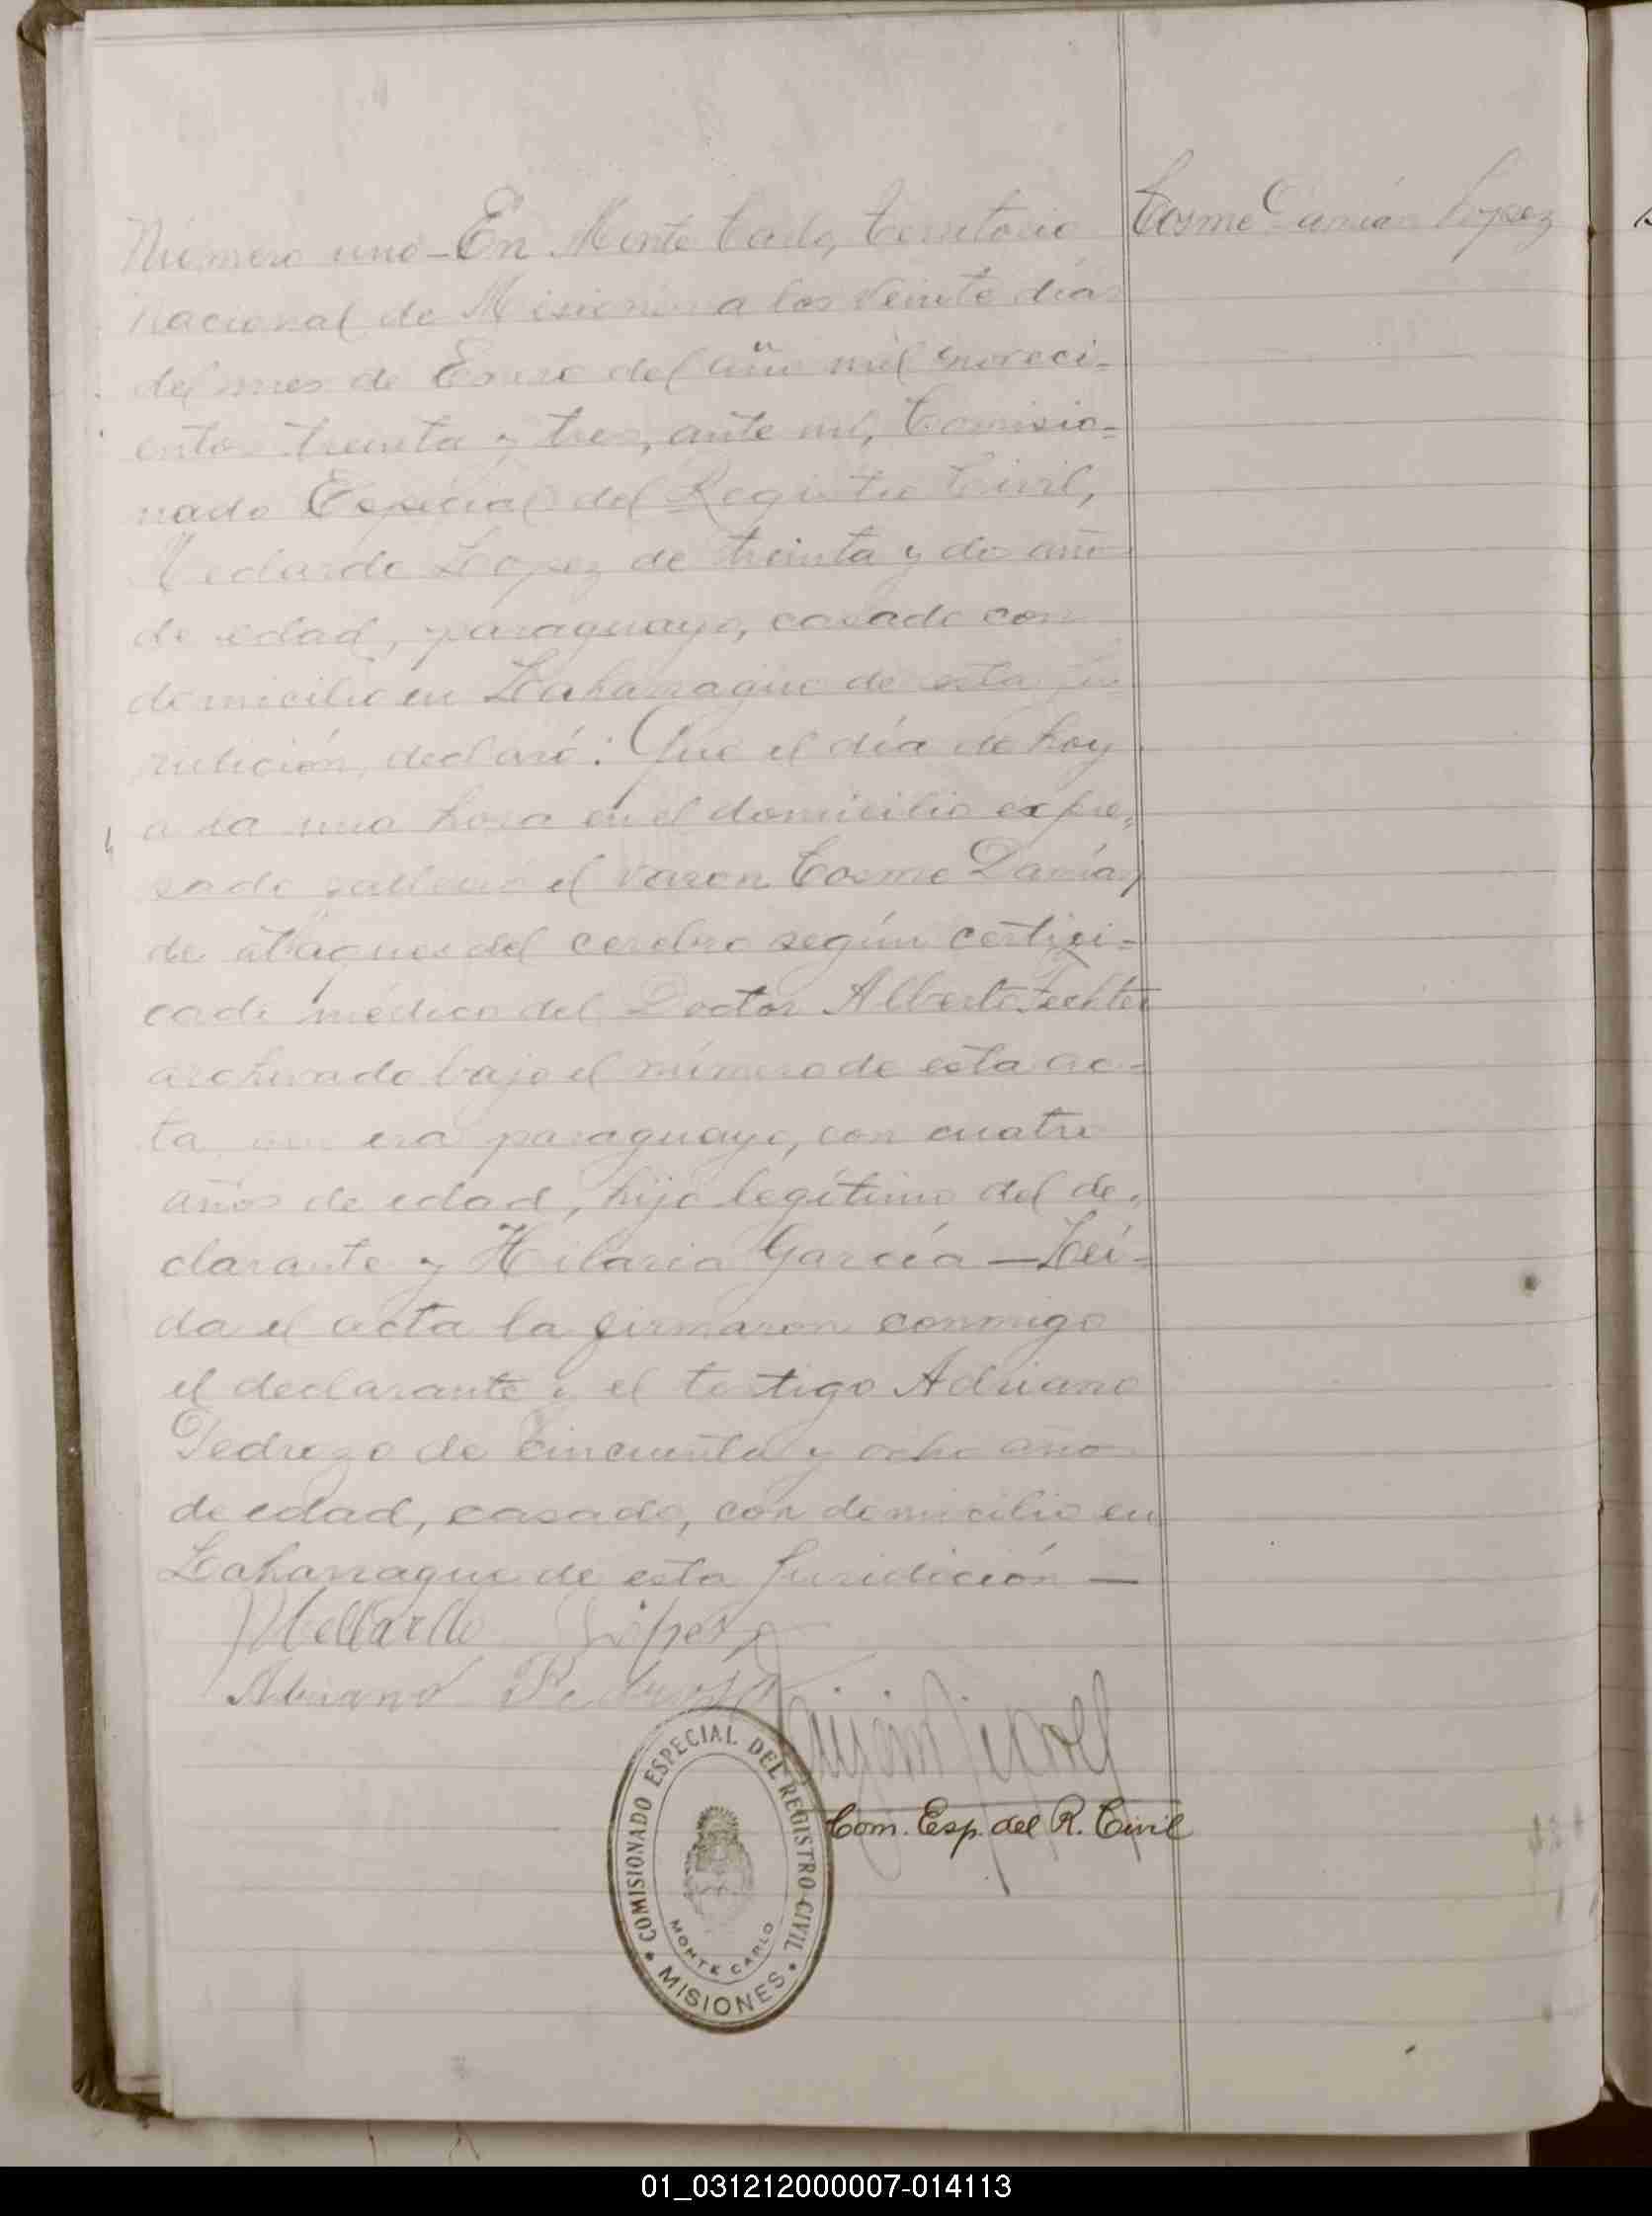 Número uno - En Monte Carlo, Territorio
Cosme Damián López
Nacional de Misiones a los veinte días
del mes de Enero del año mil noveci=
entos treinta y tres, ante mi, Comisio=
nado Especial del Registro Civil,
Medardo López de treinta y dos años
de edad, paraguayo, casado con
domicilio en Laharrague de esta Ju=
ridición, declaró: Que el día de hoy
a la una hora en el domicilio expre=
sado falleció el varon Cosme Damián,
de ataques del cerebro según certifi=
cado médico del Doctor Alberto Fechter
archivado bajo el número de esta ac=
ta era paraguayo, con cuatro
años de edad, hijo legítimo del de=
clarante y Hilaria García - Leí=
da el acta la firmaron conmigo
el declarante y el testigo Adriano
Pedrozo de cincuenta y ocho años
de edad, casado, con domicilio en
Laharrague de esta Juridición -
Medardo López
Adriano Pedrozo
Com. Esp. del R. Civil
COMISIONADO ESPECIAL DEL REGISTRO CIVIL
MONTE CARLO
MISIONES
01_031212000007-014113